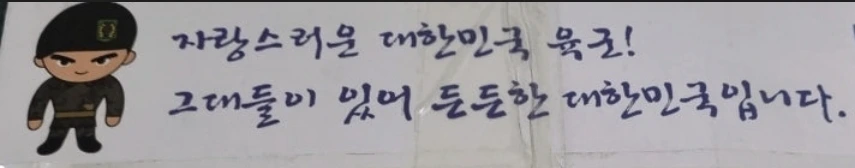 자랑스러운 대한민국 육군!
그대들이 있어 든든한 대한민국입니다.